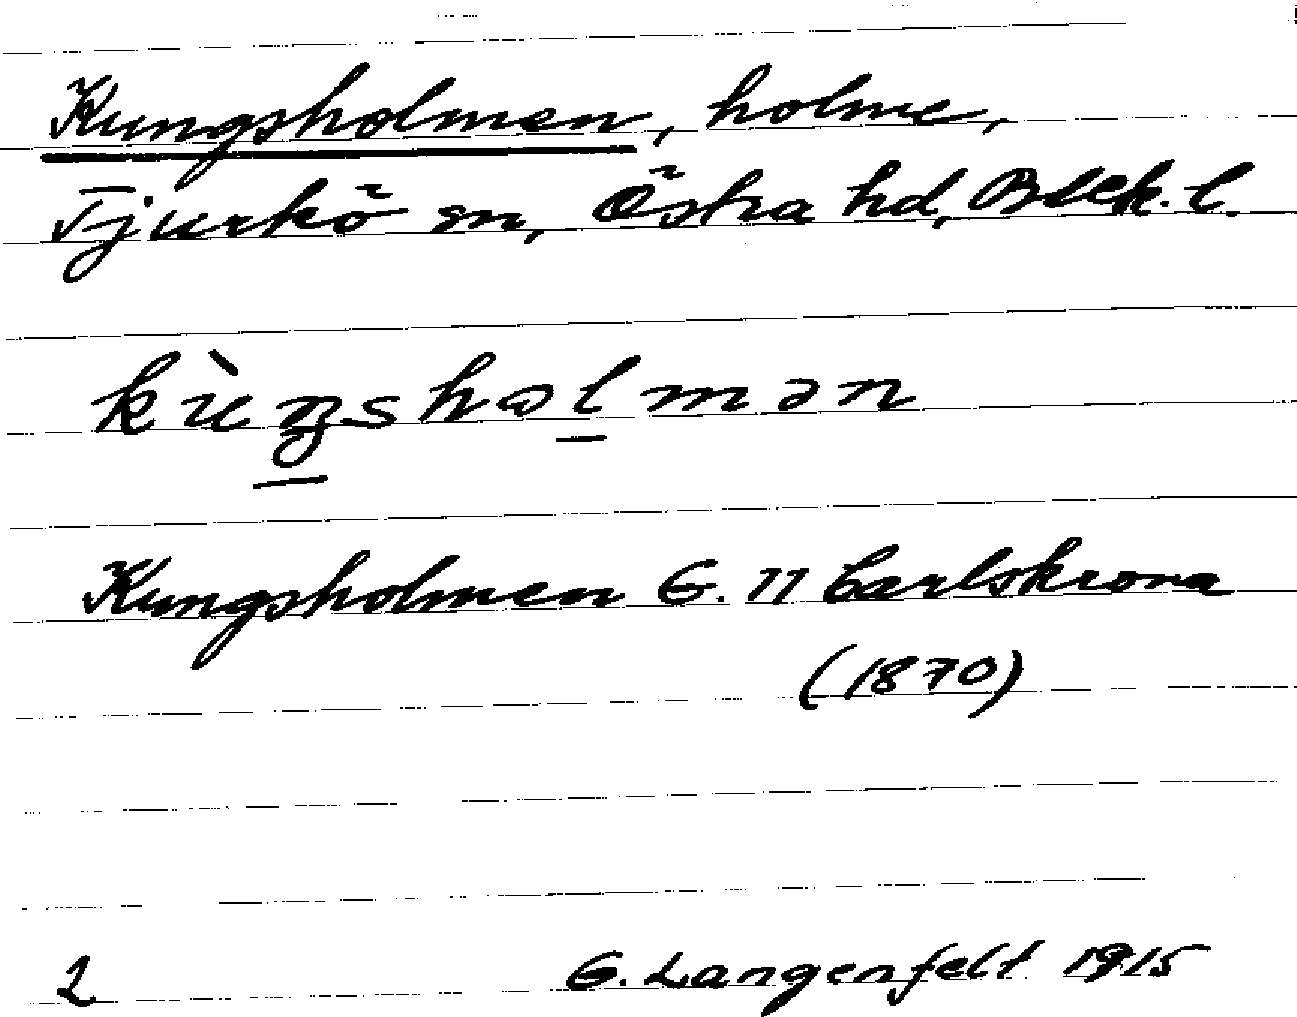 Kungsholmen, holme,
Tjurkö sn, Östra hd, Blek. l.
kùŋshɷlmən
Kungsholmen G. 11 Carlskrona
(1870)
2 G. Langenfelt 1915